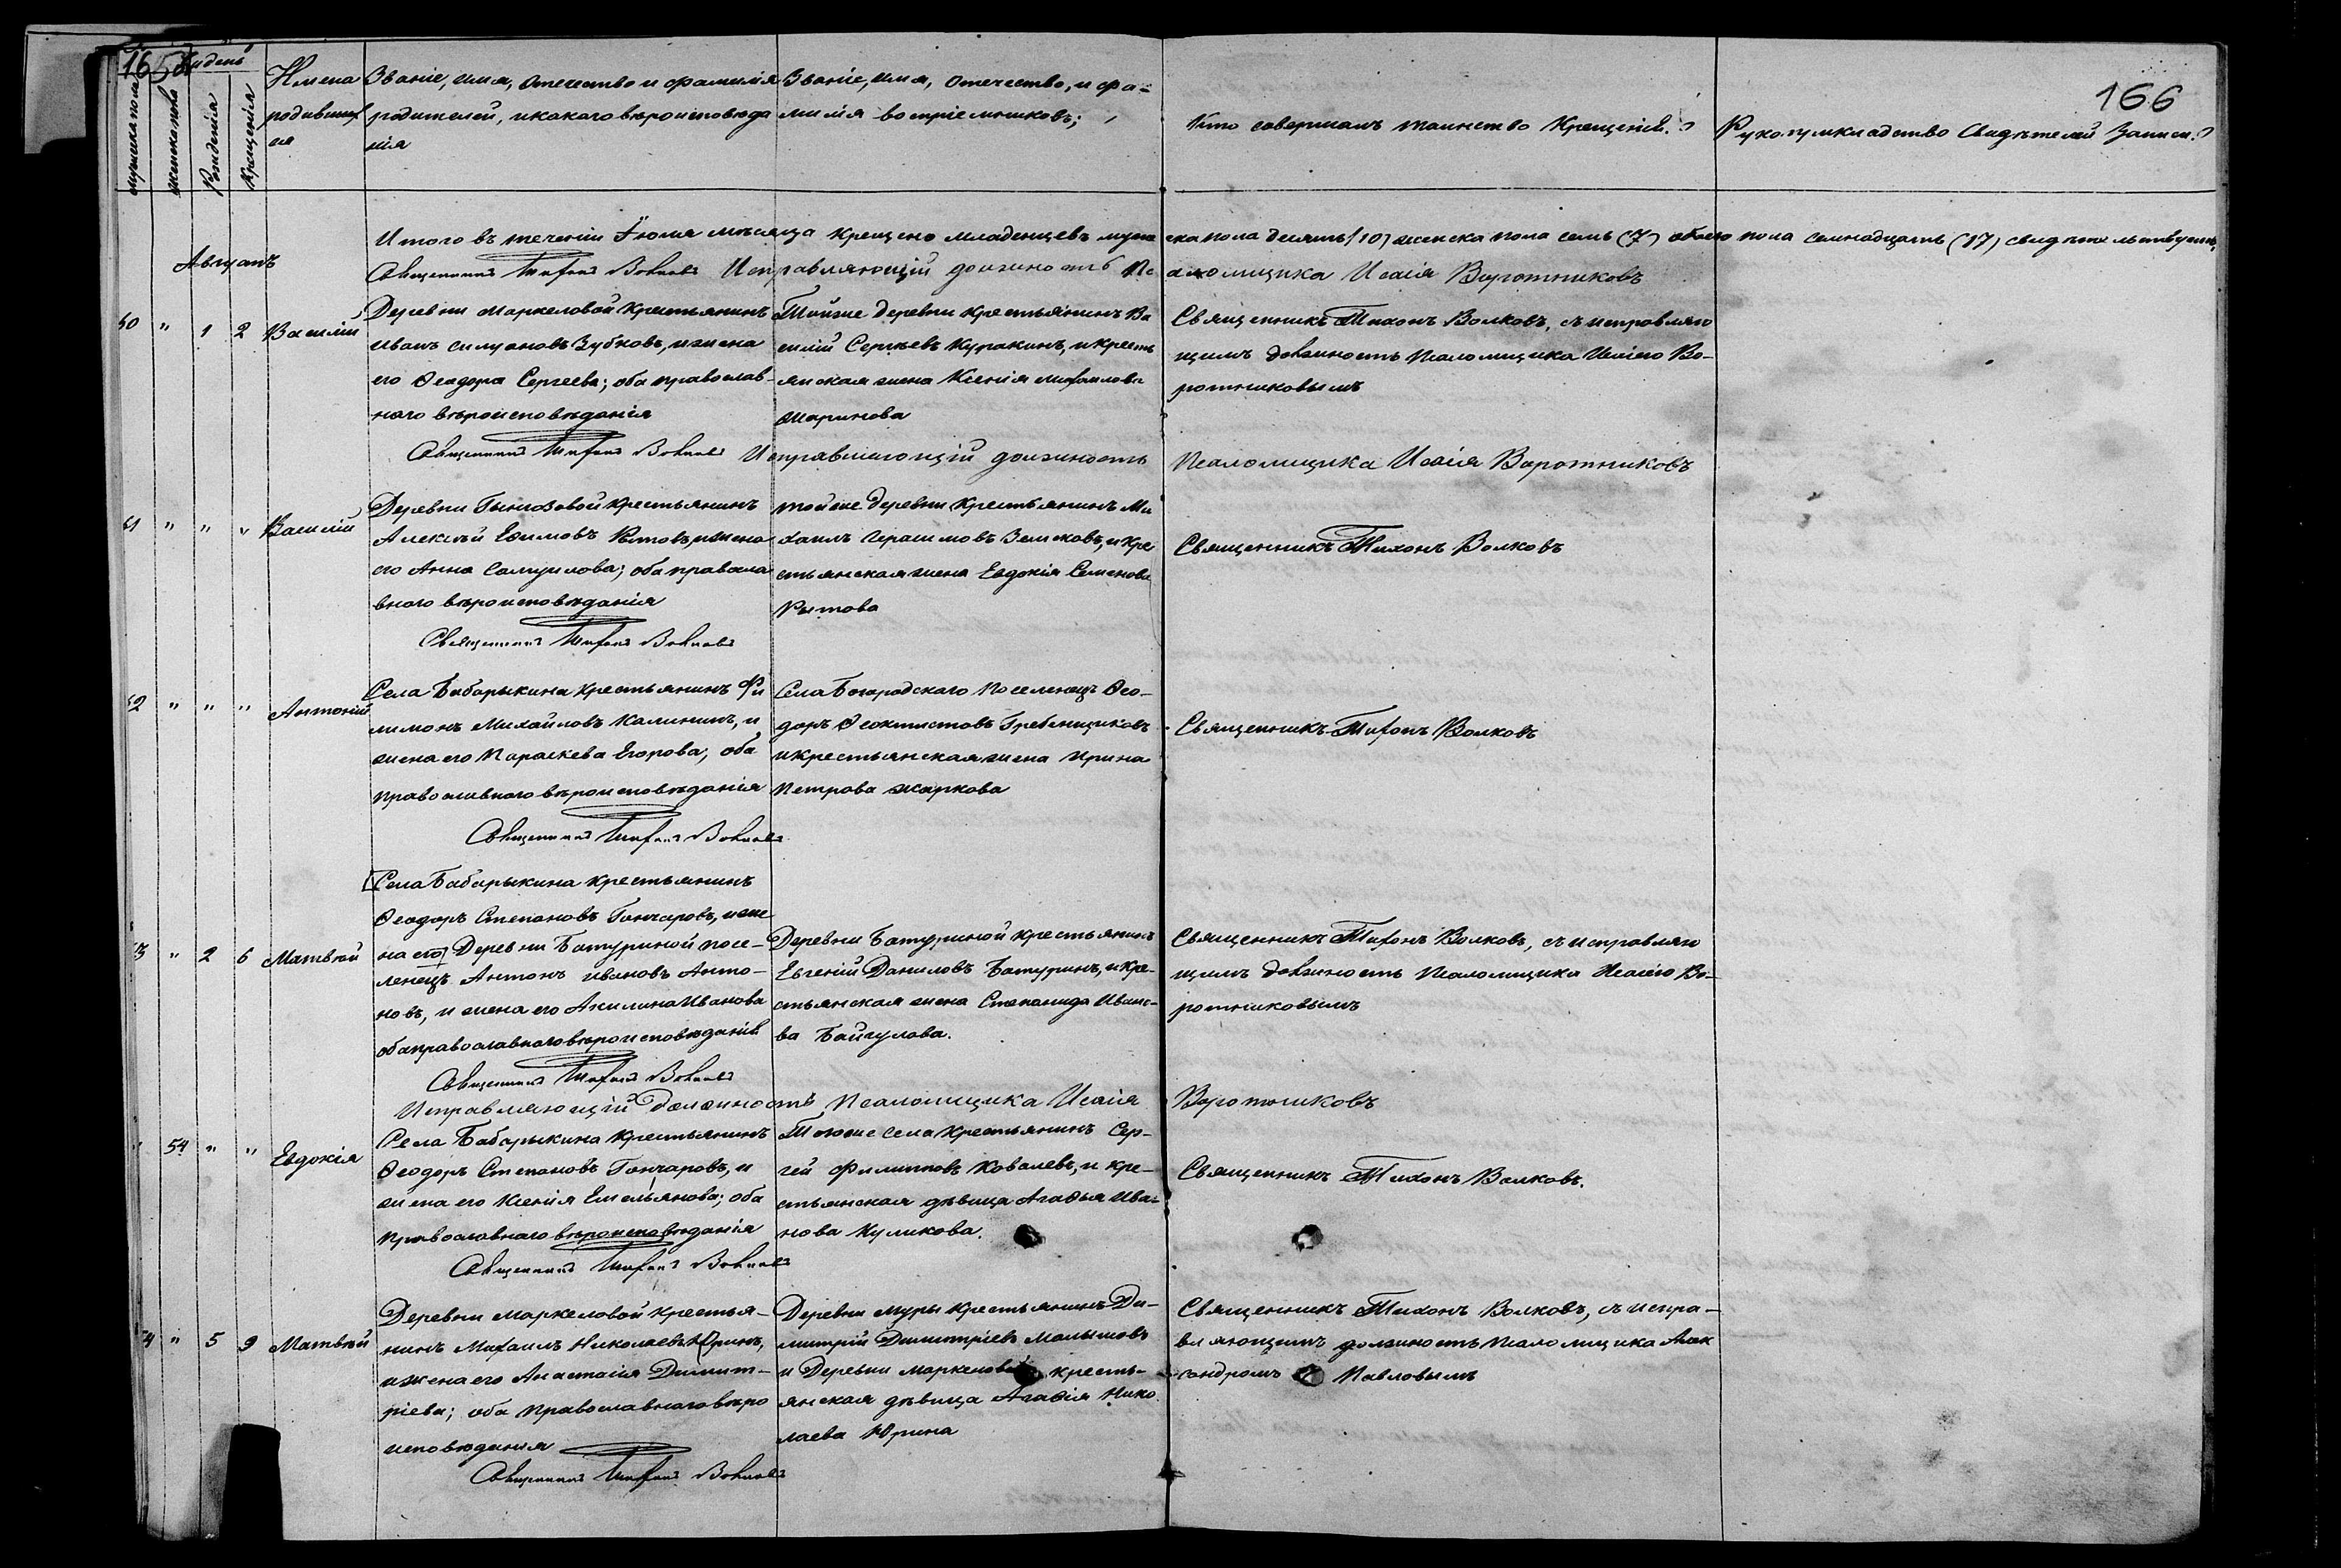 165об
166
мужеска пола
женска пола
и день
Рожденія
Крещенія
Имена
родивших
ся
Званіе, имя, отечество и фамилія
родителей, и какого вѣроисповѣда
нія
Званіе, имя, отечество, и фа-
милія воспріемниковъ;
Кто совершалъ таинство Крещенія.
Рукоприкладство свидѣтелей записи.
Августъ
Итого въ теченіи Іюля мѣсяца крещено младенцевъ муже ска пола десять (10) женска пола семь (7) обоего пола семнадцать (17) свидѣтельствуетъ,
Священникъ Тихонъ Волковъ Исправляющій должность Псаломщика Исаія Воротниковъ
50 " 1 2 Василій
Деревни Маркеловой крестьянинъ
Иванъ Силуановъ Зубковъ, и жена
его Ѳеодора Сергеева; оба православ-
наго вѣроисповѣданія
Тойже деревни крестьянинъ Ва
силій Сергѣевъ Куракинъ, и кресть
янская жена Ксенія Михаилова
Маринова
Священникъ Тихонъ Волковъ, съ исправляю
щимъ должность Псаломщика Исаіею Во-
ротниковымъ
Священникъ Тихонъ Волковъ Исправляющій должность Псаломщика Исаія Воротниковъ
51 " " " Василій
Деревни крестьянинъ
Алексѣй Ефимовъ Рытовъ, и жена
его Анна Самуилова; оба правосла
внаго вѣроисповѣданія
тойже деревни крестьянинъ Ми
хаилъ Герасимовъ и кре
стьянская жена Евдокія Семенова
Рытова
Священникъ Тихонъ Волковъ
Священникъ Тихонъ Волковъ
52 " " " Антоній
Села Бабарыкина крестьянинъ Фи
лимонъ Михайловъ Калининъ, и
жена его Параскева Егорова; оба
православнаго вѣроисповѣданія
Села Богородскаго поселенецъ Ѳео-
доръ Ѳеоктистовъ Гребенщиковъ
и крестьянская жена Ирина
Петрова Жаркова
Священникъ Тихонъ Волковъ
Священникъ Тихонъ Волковъ
53 " 2 6 Матвѣй
[Села Бабарыкина крестьянинъ
Ѳеодоръ Степановъ Гончаровъ, и же
на его] Деревни Батуриной посе-
ленецъ Антонъ Ивановъ Анто-
новъ, и жена его Акилина Иванова
оба православнаго вѣроисповѣданія
Деревни Батуриной крестьянинъ
Евгеній Даниловъ Батуринъ, и кре-
стьянская жена Степанида Ивано-
ва Байгулова.
Священникъ Тихонъ Волковъ, съ исправляю
щимъ должность Псаломщика Исаіею Во-
ротниковымъ
Священникъ Тихонъ Волковъ
Исправляющій должность Псаломщика Исаія Воротниковъ
" 54 " " Евдокія
Села Бабарыкина крестьянинъ
Ѳеодоръ Степановъ Гончаровъ, и
жена его Ксенія Емельянова; оба
православнаго вѣроисповѣданія
Тогоже села крестьянинъ Сер-
гей Филиповъ Ковалевъ, и кре-
стьянская дѣвица Агафья Ива-
нова Куликова.
Священникъ Тихонъ Волковъ.
Священникъ Тихонъ Волковъ
54 " 5 9 Матвѣй
Деревни Маркеловой крестья-
нинъ Михаилъ Николаевъ Юринъ,
и жена его Анастасія Димит-
ріева; оба православнаго вѣро
исповѣданія
Деревни Муры крестьянинъ Ди-
митрій Димитріевъ Малышовъ
и Деревни Маркеловой кресть-
янская дѣвица Агафія Нико
лаева Юрина
Священникъ Тихонъ Волковъ, съ испра-
вляющимъ должность Псаломщика Алек
сандромъ Павловымъ
Священникъ Тихонъ Волковъ